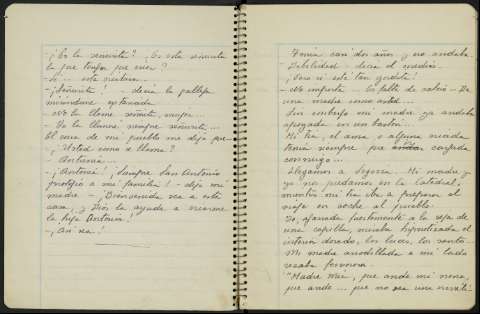 - ¿Es la
- Sí... esta
- ¡Señorita! - decía la
mirándome extasiada
- No la llame señorita, mujer...
- Yo la llamo siempre señorita...
El cura de mi pueblo me dijo que
- ¿Usted cómo se llama?
- Antonia...
- ¡Antonia! ¡Siempre San Antonio
protegió a mi familia! - dijo mi
madre - ¡Bienvenida sea a esta
casa, y Dios la ayude a
la hija Antonia!
- ¡Así sea!
Tenía casi dos años y no andaba.
- Debilidad - decía el médico.
- ¡Pero si está tan gordita!
- No importa... Es falta de calcio - De
una madre como usted...
Sin embargo mi madre ya andaba
apoyada en un bastón...
Mi tía, el ama, o alguna criada
tenía siempre que cargada
conmigo...
Llegamos a Segovia. Mi madre y
yo nos quedamos en la Catedral,
mientras mi tía iba a preparar el
viaje en coche al pueblo.
Yo, agarrada fuertemente a la reja de
una capilla, miraba hipnotizada el
interior dorado, las luces, los santos.
Mi madre arrodillada a mi lado
rezaba fervorosa.
"Madre mía, que ande mi nena,
que ande... que no sea una